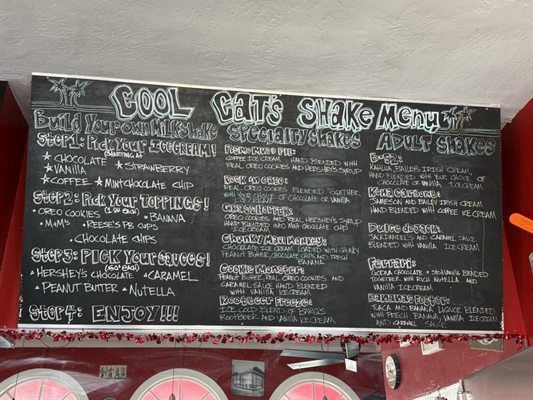 Cool Cat's Shake Menu
Build Your Own Milkshake
Step 1: Pick Your Icecream!
Starting at
Chocolate
Strawberry
Vanilla
Coffee
Mint Chocolate Chip
Step 2: Pick Your Toppings!
Oreo Cookies
Banana
M&M's
Reese's PB Cups
Chocolate Chips
Step 3: Pick Your Sauces!
Hershey's Chocolate
Caramel
Peanut Butter
Nutella
Step 4: Enjoy!!!
Specialty Shakes
Coffee Ice Cream Hand Blended with
Real Oreo Cookies and Hershey's Syrup
Rock 'n Oreo:
Real Oreo Cookies Blended Together
with your choice of Chocolate or Vanilla
Oreo Cookies and Real Hershey's Syrup
Hand Dipped into Mint Chocolate Chip
Icecream
Chunky Mal Monkey:
Chocolate Ice Cream Loaded with Chunky
Peanut Butter, Chocolate Chips and Fresh
Banana
Cookie Monster:
Peanut Butter, Real Oreo Cookies and
Caramel Sauce Hand Blended
with Vanilla Icecream
Rootbeer Freeze:
Ice Cold Blend of Barq's
Rootbeer and Vanilla Icecream
Adult Shakes
B-52:
Kahlua, Baileys Irish Cream
Hand Blended with Your Choice of
Chocolate or Vanilla Icecream
Jameson and Bailey Irish Cream
Hand Blended with Coffee Icecream
Dulce de Jack:
Jack Daniel's and Caramel Sauce
Blended with Vanilla Icecream
Ferrari:
Godiva Chocolate + Blended
Together with Rich Nutella and
Vanilla Icecream
Bananas Foster:
Banana Liquor Blended
with Fresh Banana, Vanilla Icecream
and Caramel Sauce